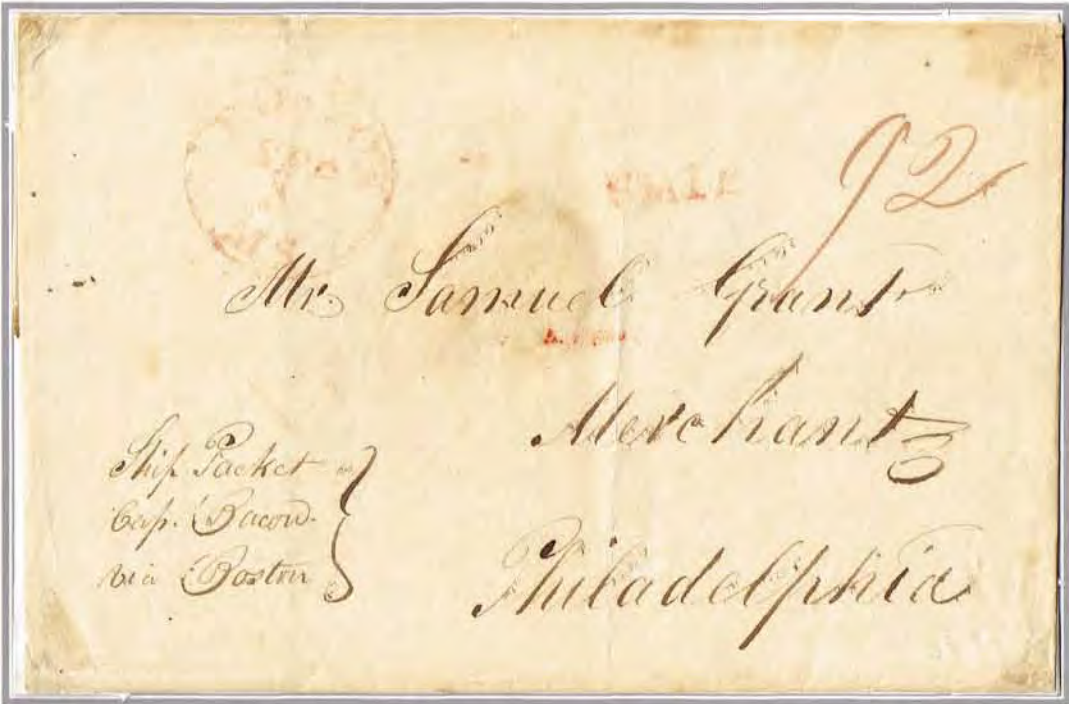 92
Mr. Samuel Grant
Merchant
Philadelphia
Ship Packet
Cap. Bacon.
via Boston